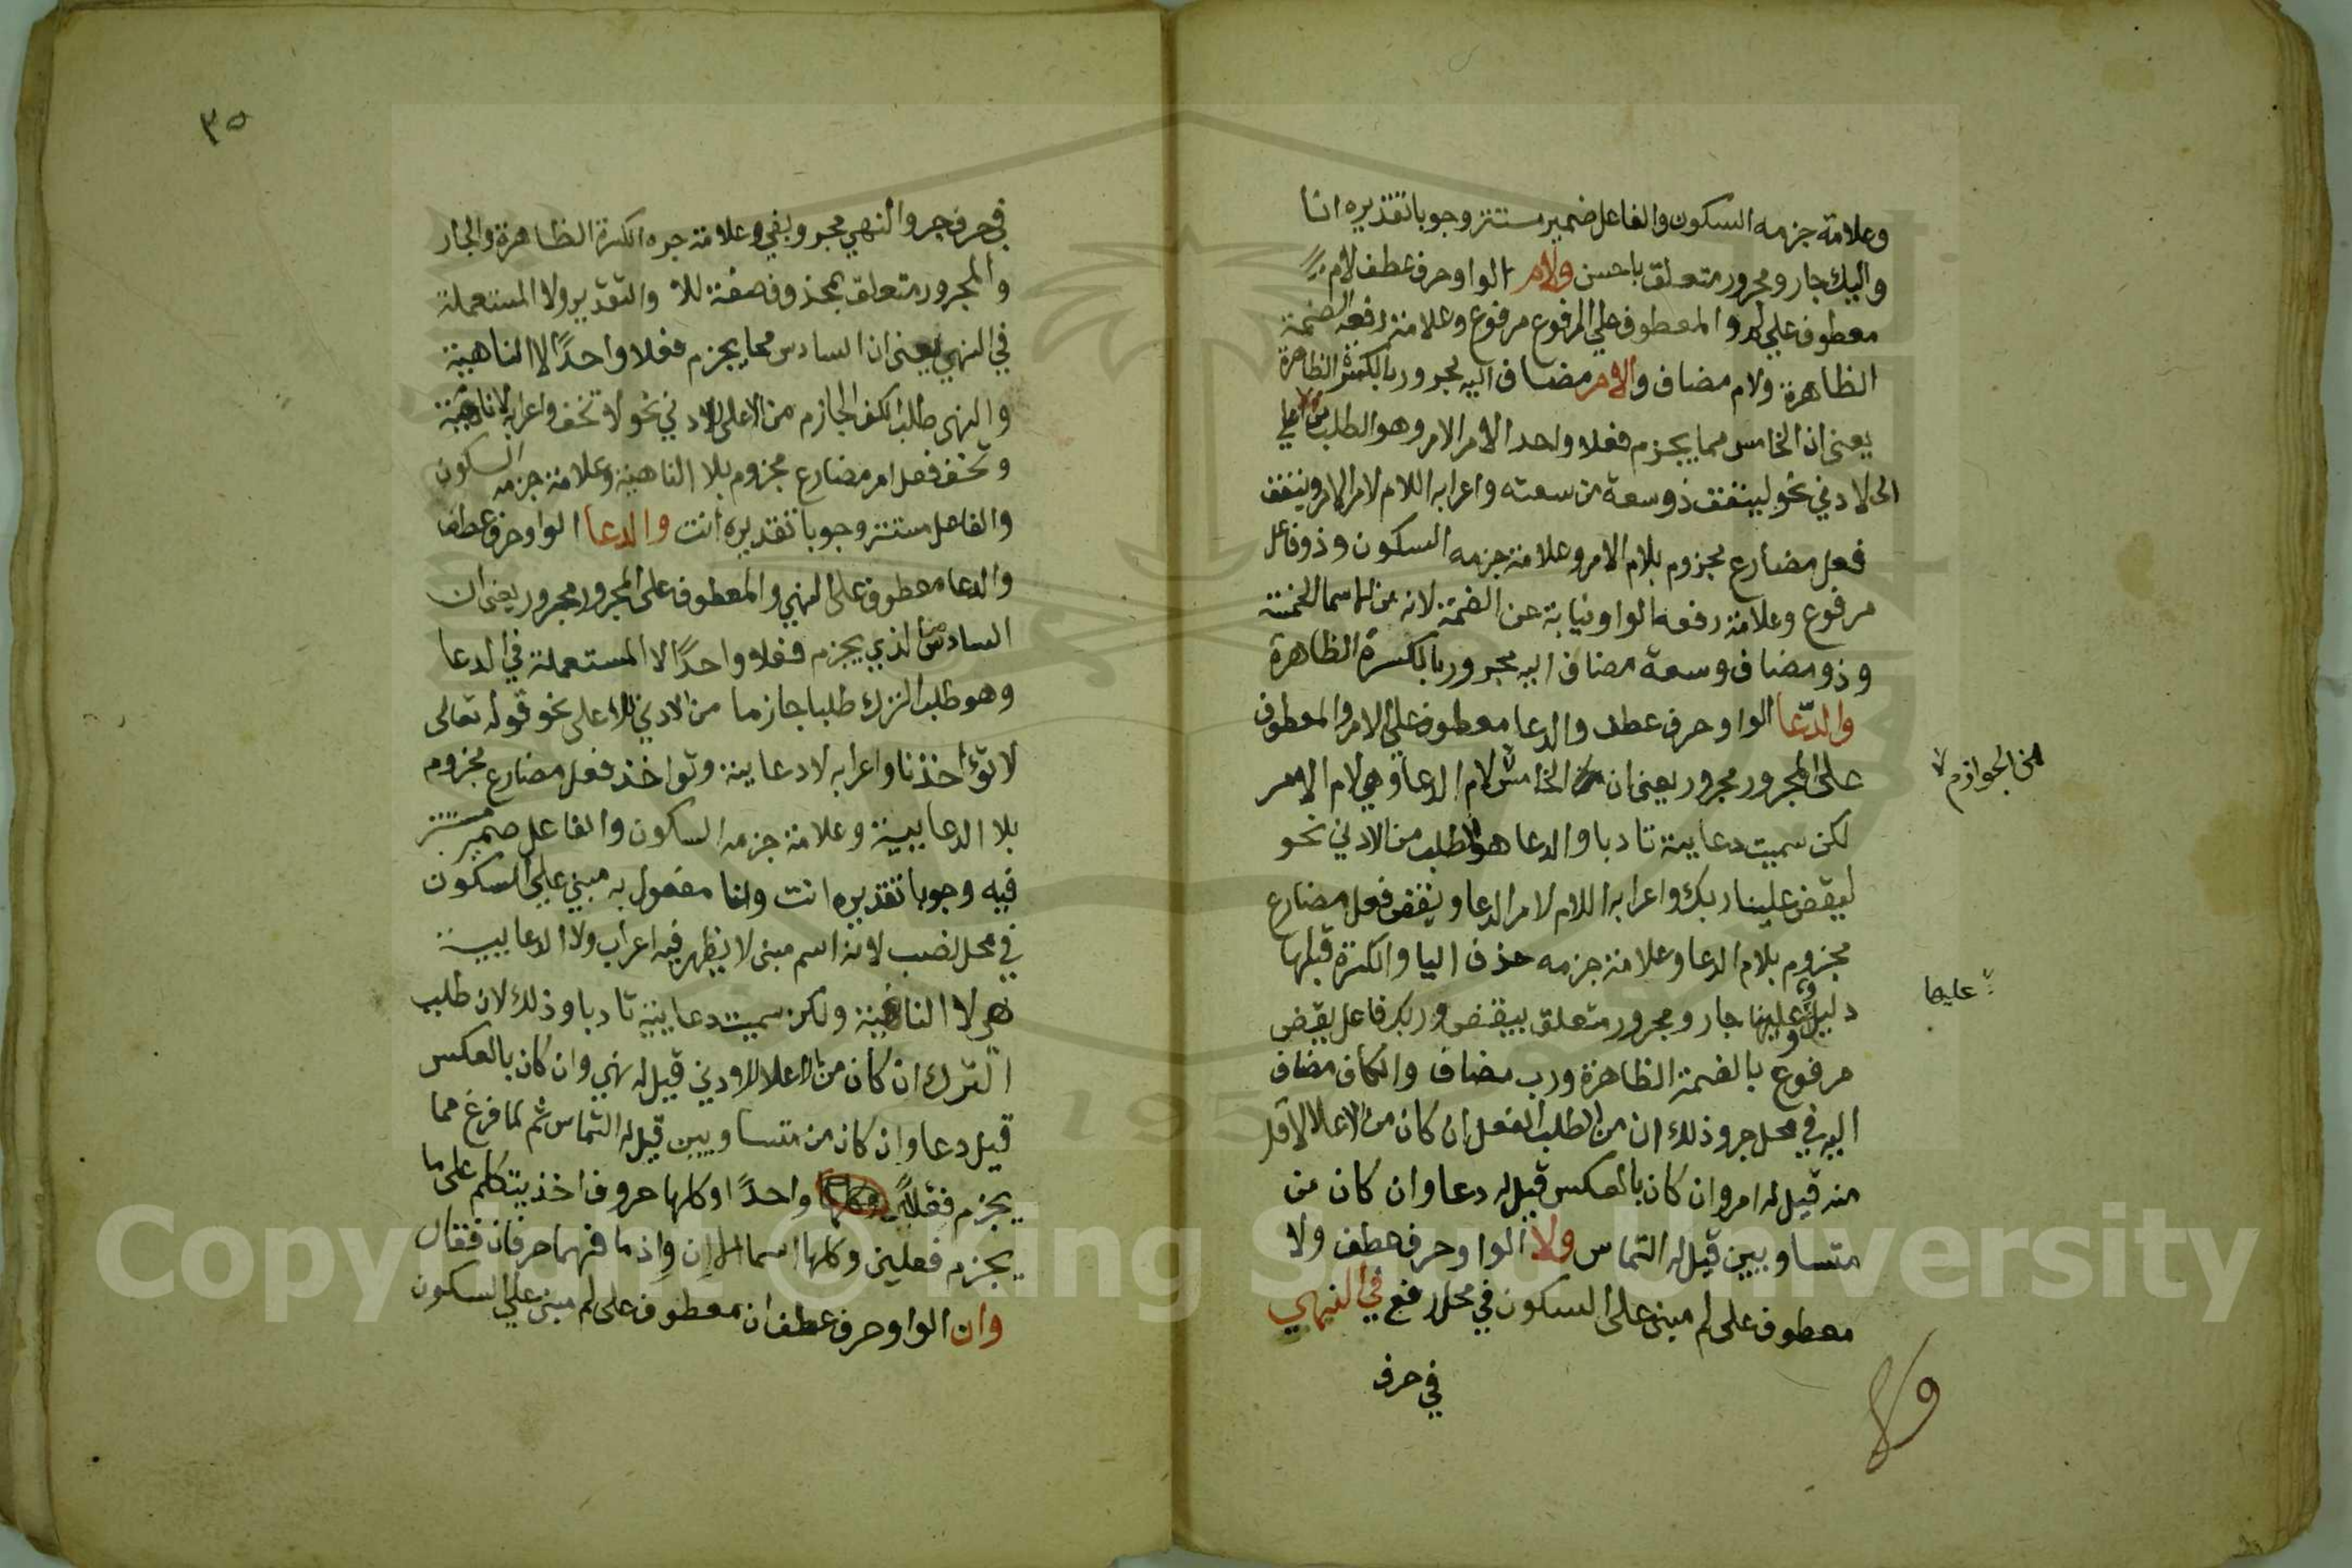 وعلامة جزمه السكون والفاعل ضمير مستتر وجوبا تقديره انا
واليك جار ومجرور متعلق باحسن ولام الواو حرف عطف لام
معطوف علي لم والمعطوف علي المرفوع مرفوع وعلامة رفعه الضمة
الظاهرة ولام مضاف والامر مضاف اليه مجرور بالكسرة الظاهرة
يعني ان الخامس مما يجزم فعلا واحد الام الامر وهو الطلب من الاعلي
الى لادني نحو لينفق ذو سعة من سعته واعرابه اللام لام الامر وينفق
فعل مضارع مجزوم بلام الامر وعلامة جزمه السكون وذو فاعل
مرفوع وعلامة رفعه الواو نيابة عن الضمة لانه من الاسما الخمسة
وذو مضاف وسعة مضاف اليه مجرور بالكسرة الظاهرة
والدعا الواو حرف عطف والدعا معطوف علي الامر والمعطوف
على المجرور مجرور يعني ان الخامس لام الدعا وهي لام الامر
من الجوازم
لكن سميت دعايية تادبا والدعا هو الطلب من الادني نحو
ليقض علينا ربك واعرابه اللام لام الدعا ويقض فعل مضارع
مجزوم بلام الدعا وعلامة جزمه حذف اليا والكسرة قبلها
دليل وعلينا جار ومجرور متعلق بيقض وربك فاعل يقض
عليها
مرفوع بالضمة الظاهرة ورب مضاف والكاف مضاف
اليه في محل جر وذلك ان من الطلب الفعل ان كان من الاعلا لاقل
منه قيل له امر وان كان بالعكس قيل له دعا وان كان من
متساويين قيل له التماس ولا الواو حرف عطف ولا
معطوف على لم مبني على السكون في محل رفع في النهي
في حرف
٣٥
في حرف جر والنهي مجرور بفي وعلامة جره الكسرة الظاهرة والجار
والمجرور متعلق بمحذوف صفة للا والتقدير ولا المستعملة
في النهي يعني ان السادس مما يجزم فعلا واحدًا لا الناهية
والنهي طلب الكف الجازم من الاعلى للادني نحو لا تخف واعرابه لا ناهية
وتخف فعل امر مضارع مجزوم بلا الناهية وعلامة جزمه السكون
والفاعل مستتر وجوبا تقديره انت والدعا الواو حرف عطف
والدعا معطوف على النهي والمعطوف على المجرور مجرور يعني ان
السادس الذي يجزم فعلا واحدًا لا المستعملة في الدعا
وهو طلب الترك طلبا جازما من الادني للاعلى نحو قوله تعالى
لا تؤاخذنا واعرابه لا دعايية وتواخذ فعل مضارع مجزوم
بلا الدعاييية وعلامة جزمه السكون والفاعل ضمير مستتر
فيه وجوبا تقديره انت ونا مفعول به مبني علي السكون
في محل نصب لانه اسم مبني لا يظهر فيه اعراب ولا الدعاييية
هي لا الناهية ولكن سميت دعايية تادبا وذلك لان طلب
الترك ان كان من الاعلا للادني قيل له نهي وان كان بالعكس
قيل دعا وان كان من متساويين قيل له التماس ثم لما فرغ مما
يجزم فعلاً واحدًا وكلها حروف اخذ يتكلم على ما
يجزم فعلين وكلها اسما الا إن وإذ ما فهما حرفان فقال
وان الواو حرف عطف ان معطوف على لم مبني علي السكون
Copyright © King Saud University
195